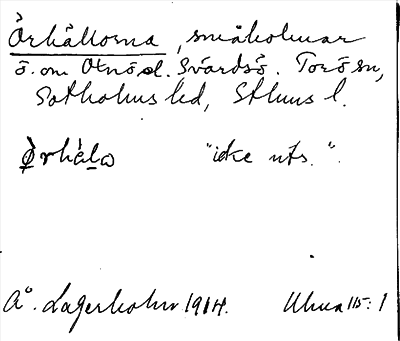 Örhållorna, småholmar
ö. om Otnö o. Svärdsö. Torö sn,
Sotholms hd, Sthms l.
"icke uts.".
Å. Lagerholm 1914. Uhua 115:1